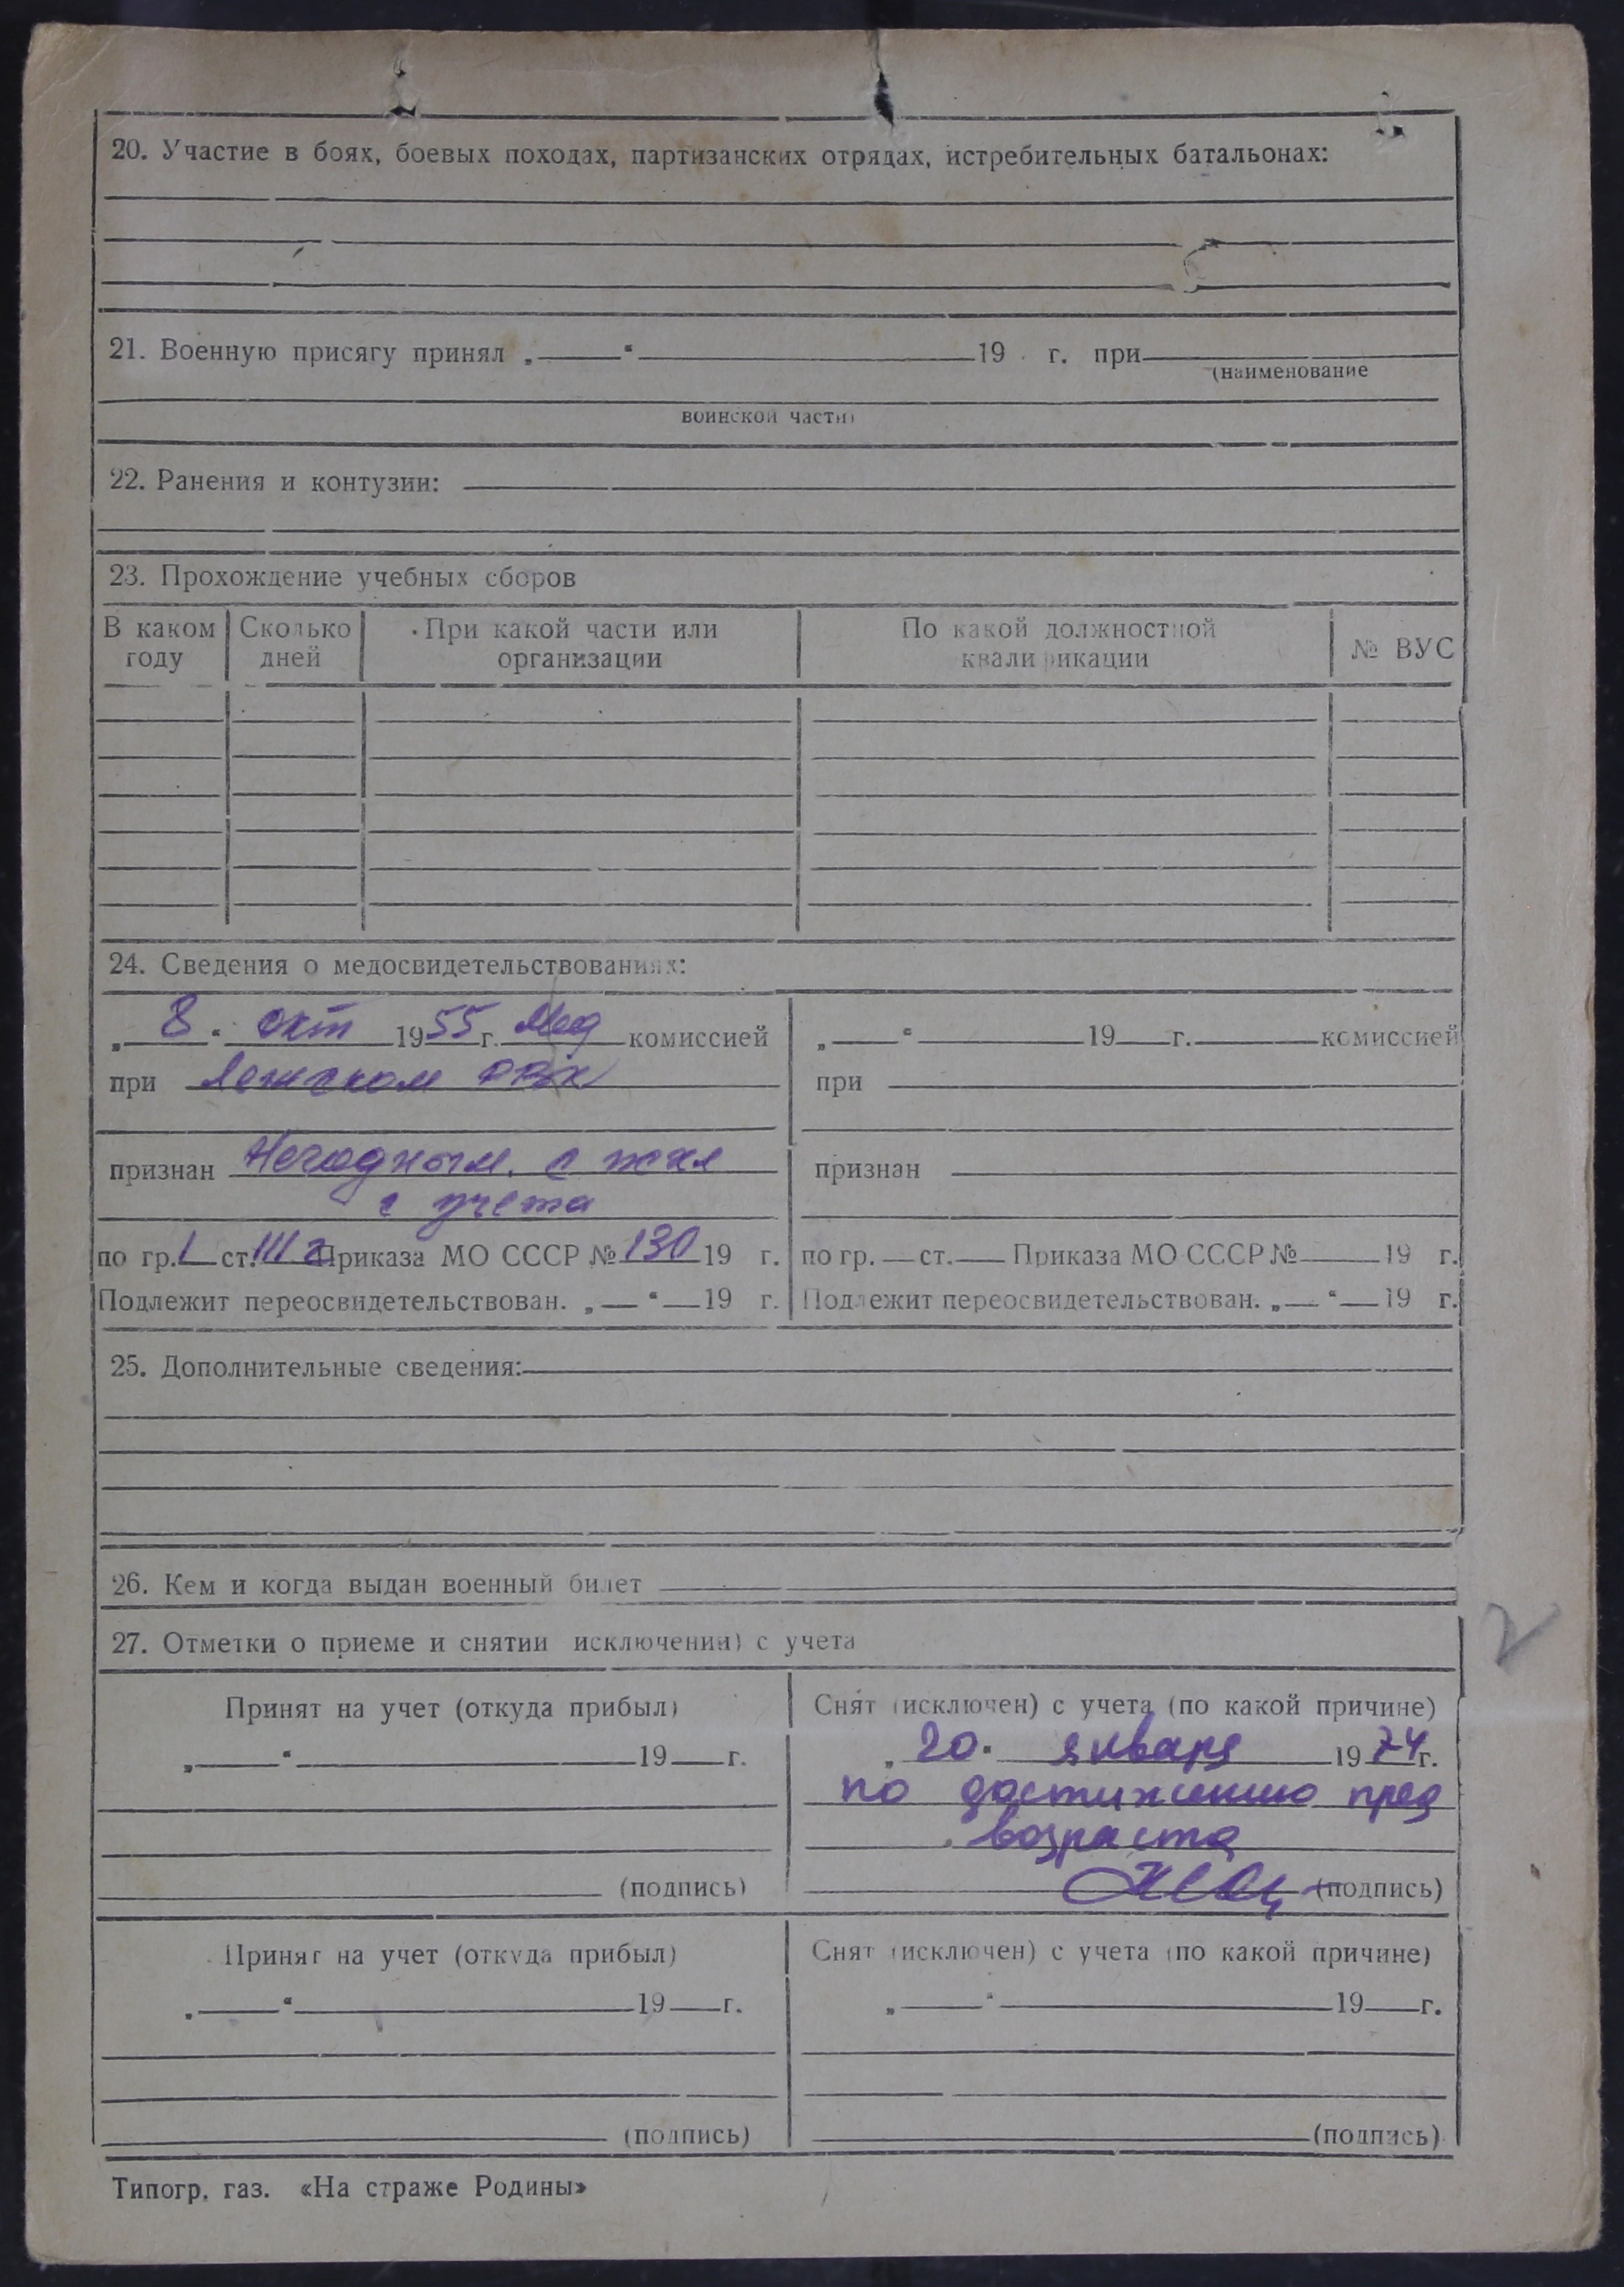 20. Участие в боях, боевых походах, партизанских отрядах, истребительных батальонах:
21. Военную присягу принял „ “ 19 г. при
(наименование
воинской части)
22. Ранения и контузии:
23. Прохождение учебных сборов
В каком году Сколько дней При какой части или организации По какой должностной квалификации № ВУС
24. Сведения о медосвидетельствованиях:
„ 8 “ окт 1955 г. Мед комиссией
при РВК
признан Негодным. с
с учета
по гр. I ст. III г Приказа МО СССР № 130 19 г.
Подлежит переосвидетельствован. „ “ 19 г.
„ “ 19 г. комиссией
при
признан
по гр. ст. Приказа МО СССР № 19 г.
Подлежит переосвидетельствован. „ “ 19 г.
25. Дополнительные сведения:
26. Кем и когда выдан военный билет
27. Отметки о приеме и снятии исключении) с учета
Принят на учет (откуда прибыл)
„ “ 19 г.
(подпись)
Снят (исключен) с учета (по какой причине)
„ 20 “ января 1974 г.
по достижению пред
возраста
(подпись)
Принят на учет (откуда прибыл)
„ “ 19 г.
(подпись)
Снят (исключен) с учета (по какой причине)
„ “ 19 г.
(подпись)
Типогр. газ. «На страже Родины»